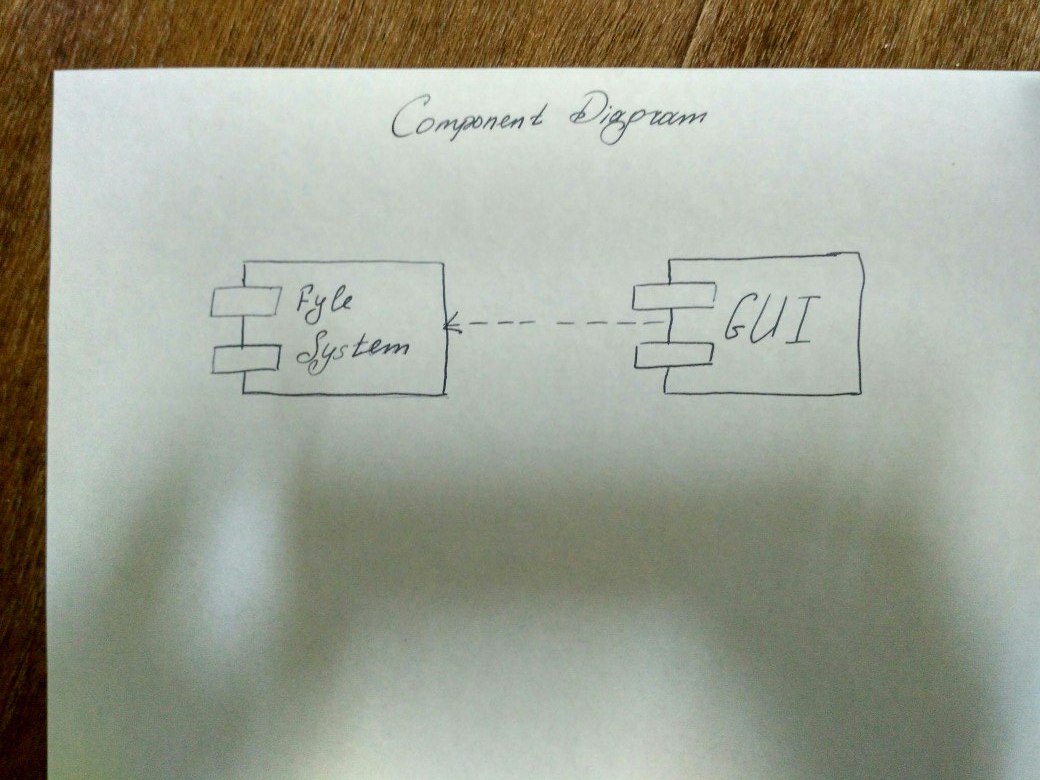 Component Diagram
Fyle
System
GUI